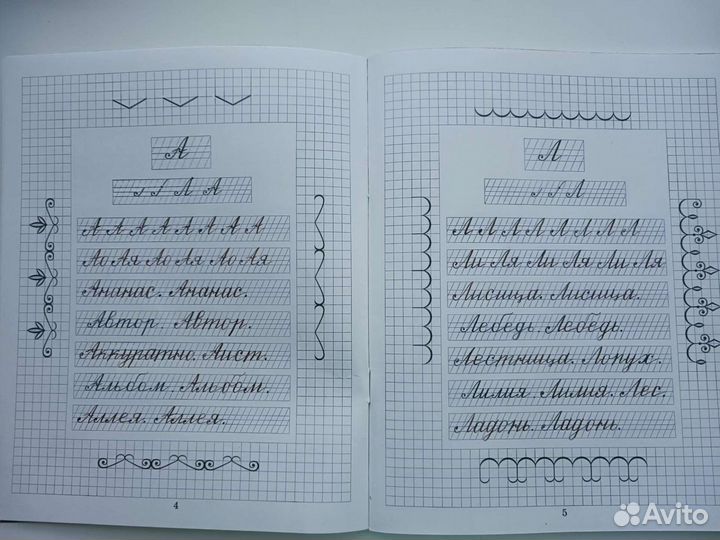 А
Л А
А А А А А А А
Ао Ая Ло Яя Ло Ая
Ананас. Ананас.
Автор. Автор.
Аккуратно. Аист.
Альбом. Альбом.
Аллея. Аллея.
4
Л
Л
Л Л Л Л Л Л Л
Ли Ля Ли Ля Ли Ля
Лисица. Лисица.
Лебедь. Лебедь.
Лестница. Лопух.
Лилия. Лилия. Лес.
Ладонь. Ладонь.
5
Avito